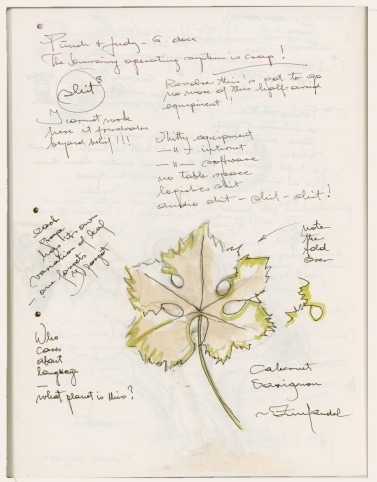 Punch & Judy - G dock
The Samsung operating system is crap!
shit 3
Resolve this is, got to go
no more of this half-arsed
equipment!!
I cannot work
here it frustrates
beyond belief!!!
Shitty equipment
— 11 — internet
— 11 — software
no table space
logistics shit
audio shit - shit - shit!
each
grape
has its own
variation of leaf
- one forgets
forget
note
the
fold
over
Who
cares
about
language
—
what planet is this?
Cabernet
Sauvignon
~ Zinfandel